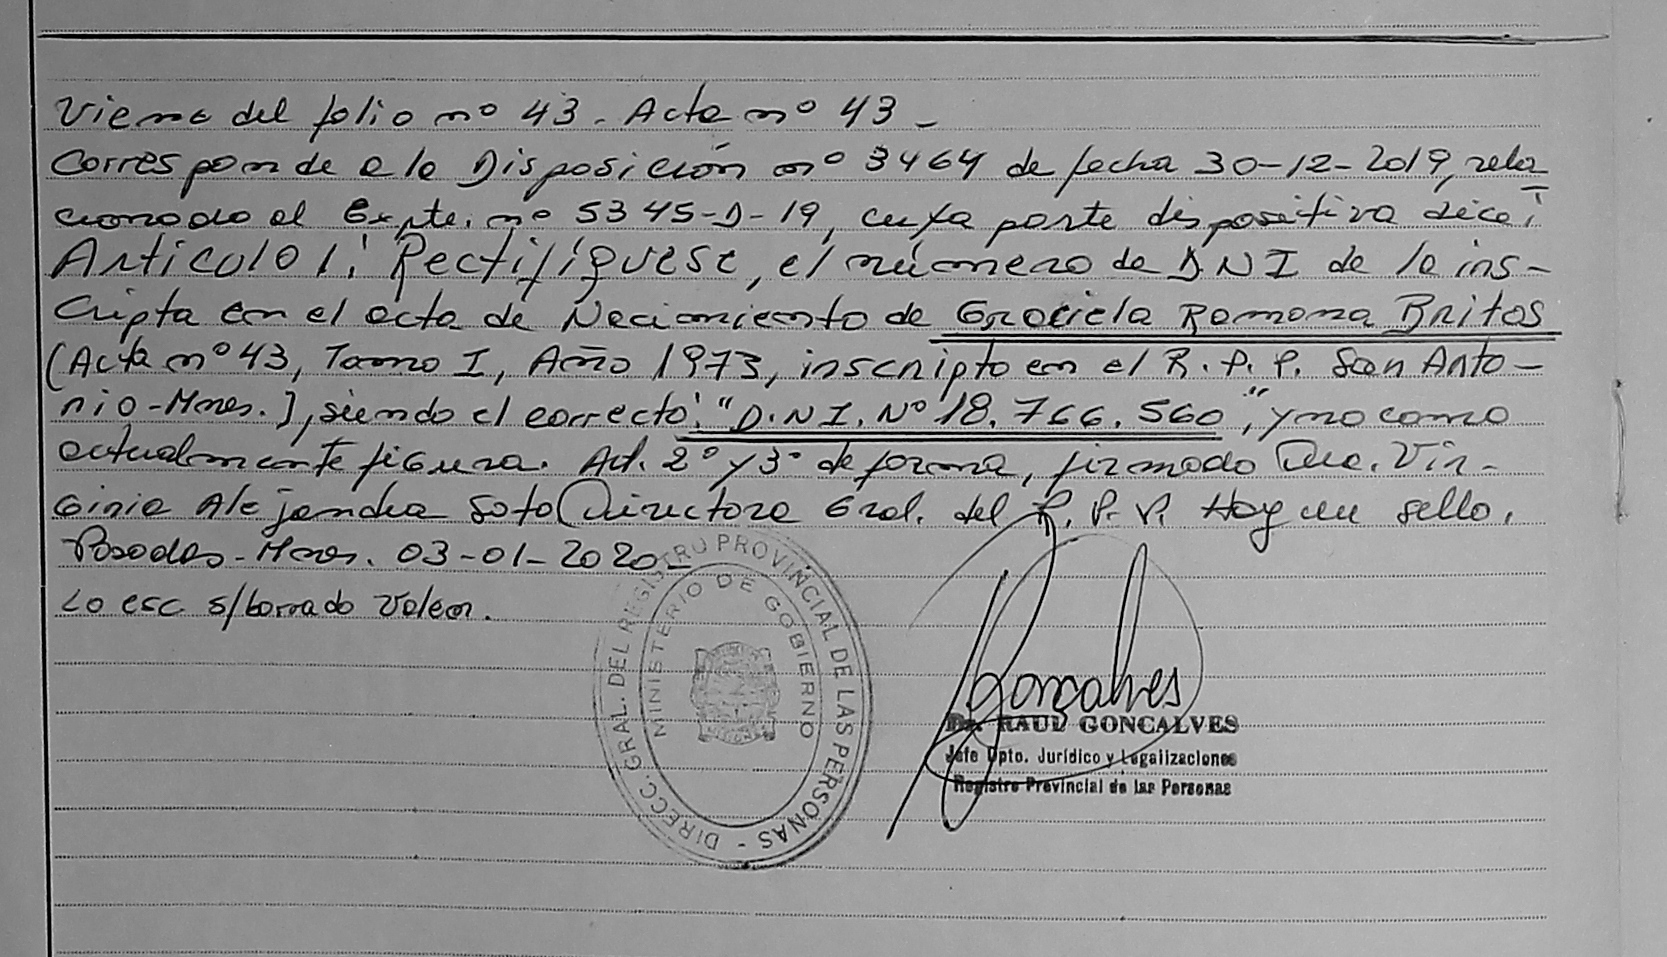 Viene del folio nº 43. Acta nº 43 -
Corresponde a la Disposición nº 3464 de fecha 30-12-2019, rela
cionado al Expte. nº 5345-D-19, cuya parte dispositiva dice:
Artículo 1: Rectifíquese, el número de D.N.I de la ins-
cripta en el acta de Nacimiento de Graciela Ramona Britos
(Acta nº 43, Tomo I, Año 1973, inscripto en el R.P.P. San Anto-
nio-Mnes.), siendo el correcto: "D.N.I. Nº 18.766.560", y no como
actualmente figura. Art. 2º y 3º de forma, firmado Dra. Vir-
ginia Alejandra Soto Directora Gral. del R.P.P. Hay un sello.
Posadas-Mnes. 03-01-2020-
Lo esc. s/borrado Valen.
DIRECC. GRAL. DEL REGISTRO PROVINCIAL DE LAS PERSONAS -
MINISTERIO DE GOBIERNO
Goncalves
Dr. RAUL GONCALVES
Jefe Dpto. Jurídico y Legalizaciones
Registro Provincial de las Personas